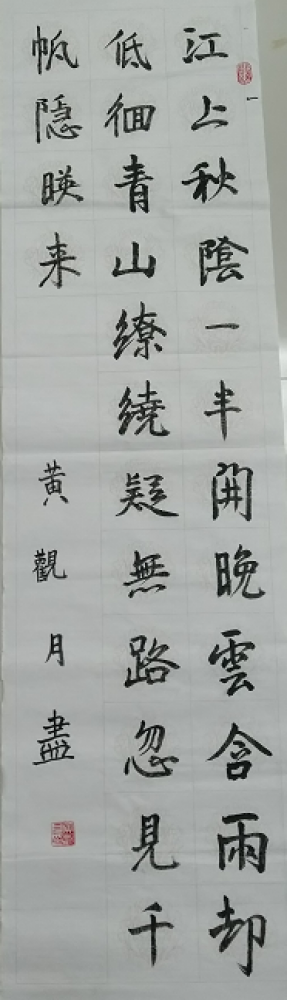 江上秋陰一半開晚雲含雨却
低徊青山繚繞疑無路忽見千
帆隱暎来
黄觀月盡